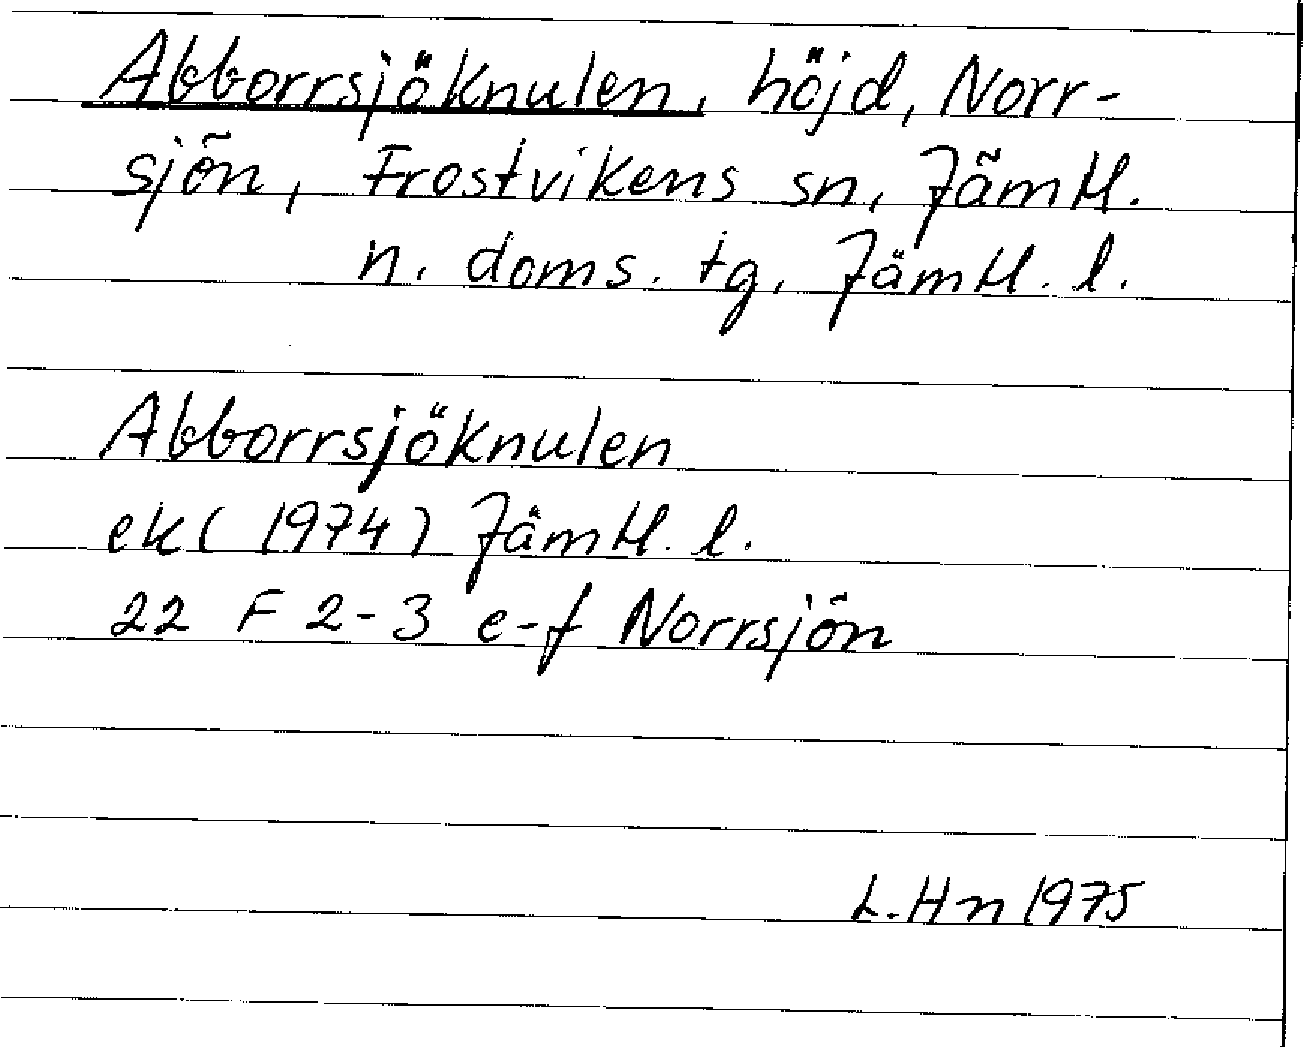 Abborrsjöknulen, höjd, Norr-
sjön, Frostvikens sn, Jämtl.
n. doms. tg, Jämtl. l.
Abborrsjöknulen
ek (1974) Jämtl. l.
22 F 2-3 e-f Norrsjön
L. Hn 1975